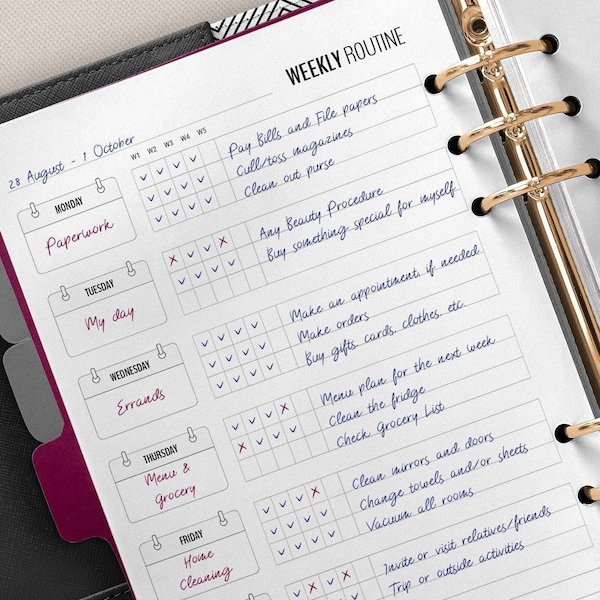 WEEKLY ROUTINE
28 August - 1 October
W1 W2 W3 W4 W5
MONDAY
Paperwork
Pay Bills and File papers
Cull/toss magazines
Clean out purse
TUESDAY
My day
Any Beauty Procedure
Buy something special for myself
WEDNESDAY
Errands
Make an appointment, if needed
Make orders
Buy gifts, cards, clothes, etc.
THURSDAY
Menu &
Grocery
Menu plan for the next week
Clean the fridge
Check Grocery List
FRIDAY
Home
Cleaning
Clean mirrors and doors
Change towels and/or sheets
Vacuum all rooms
Invite or visit relatives/friends
Trip or outside activities